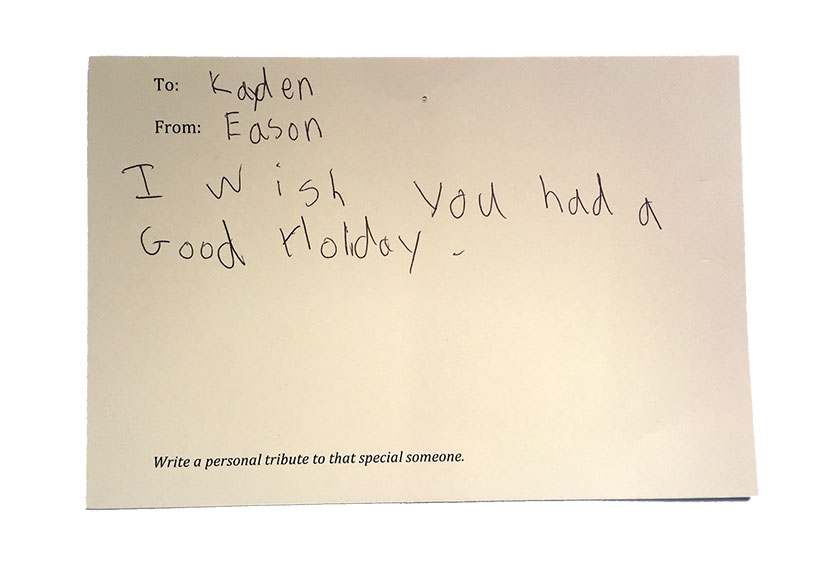 To: Kayden
From: Eason
I wish you had a
Good Holiday.
Write a personal tribute to that special someone.